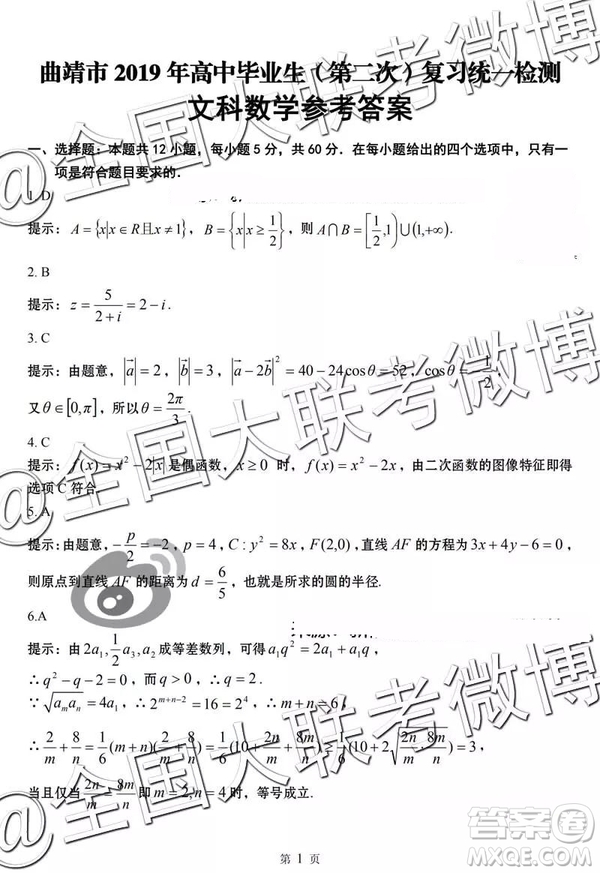 曲靖市 2019 年高中毕业生（第二次）复习统一检测
文科数学参考答案
一、选择题：本题共 12 小题，每小题 5 分，共 60 分．在每小题给出的四个选项中，只有一
项是符合题目要求的．
1. D
提示：A={x|x∈R且x≠1}，B={x|x≥1/2}，则 A∩B=[1/2,1)∪(1,+∞).
2. B
提示：z=5/(2+i)=2-i.
3. C
提示：由题意，|a⃗|=2，|b⃗|=3，|a⃗-2b⃗|²=40-24cosθ=52，cosθ=-1/2，
又θ∈[0,π]，所以θ=2π/3.
4. C
提示：f(x)=x²-2|x|是偶函数，x≥0 时，f(x)=x²-2x，由二次函数的图像特征即得
选项 C 符合.
5. A
提示:由题意,-p/2=-2，p=4，C:y²=8x，F(2,0)，直线 AF 的方程为3x+4y-6=0，
则原点到直线 AF 的距离为d=6/5，也就是所求的圆的半径.
6.A
提示：由2a₁,1/2a₃,a₂成等差数列，可得a₁q²=2a₁+a₁q，
∴q²-q-2=0，而q>0，∴q=2.
∵√(aₘaₙ)=4a₁，∴2^(m+n-2)=16=2⁴，∴m+n=6，
∴2/m+8/n=1/6(m+n)(2/m+8/n)=1/6(10+2n/m+8m/n)≥1/6(10+2√(2n/m·8m/n))=3，
当且仅当2n/m=8m/n即m=2,n=4时，等号成立.
第 1 页
@全国大联考微博
@全国大联考微博
@全国大联考微博
答案卷
MXQE.COM